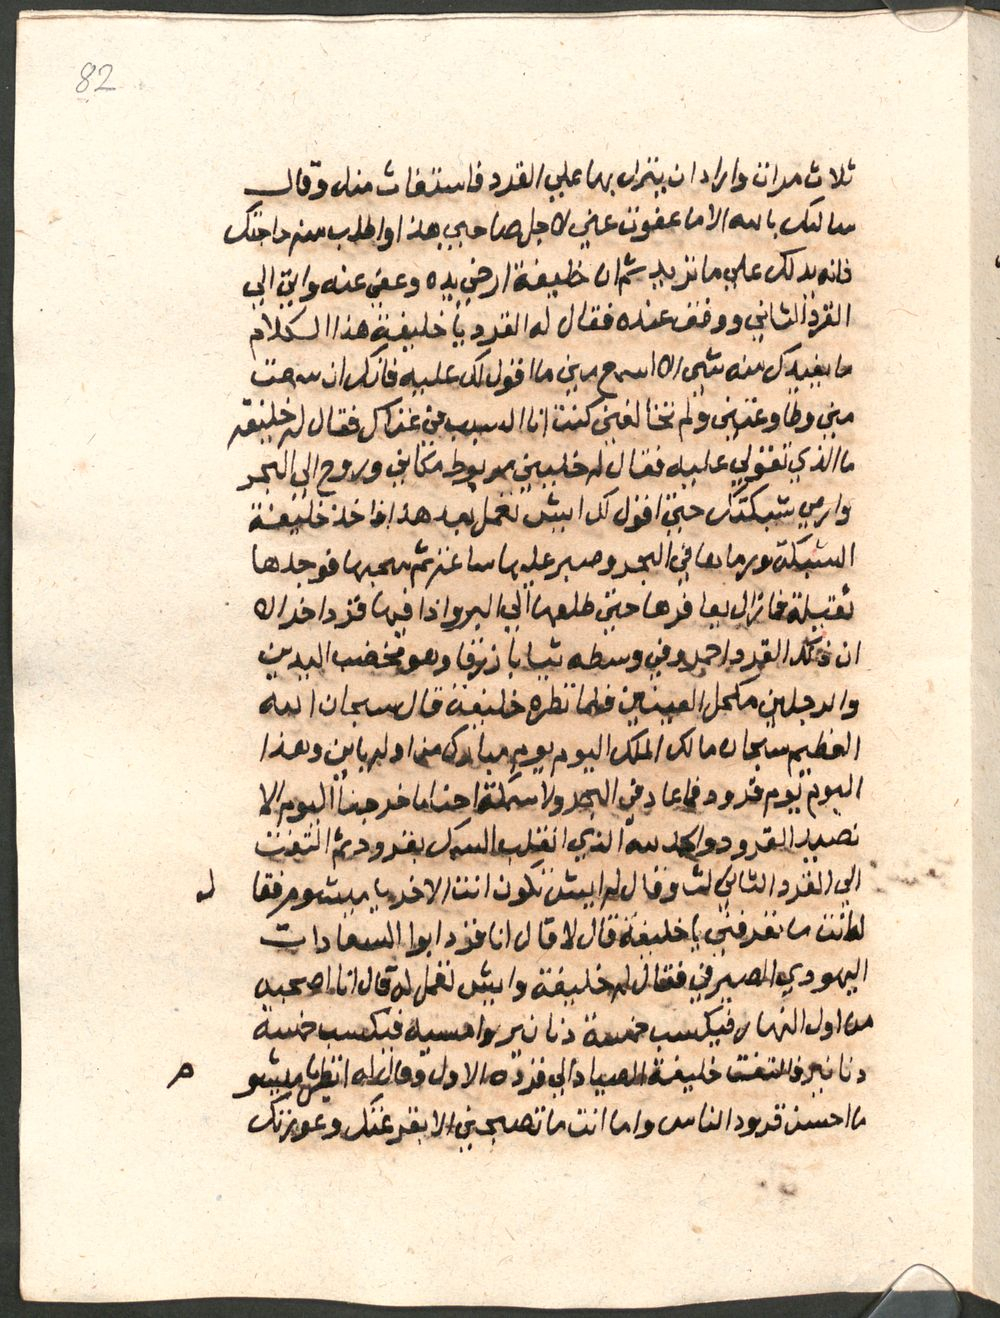 82
ثلاث مرات واراد ان ينزل بها علي القرد فاستغاث منه وقال
سالتك بالله الا ما عفوت عني لاجل صاحبي هذا واطلب منه حاجتك
فانه يدلك علي ما تريد ثم ان خليفة ارخي يده وعفي عنه واتي الي
القرد الثاني ووقف عنده فقال له القرد يا خليفة هذا الكلام
ما يفيدك منه شي الا اسمع مني ما اقول لك عليه فانك ان سمعت
مني وطاوعتني ولم تخالفني كنت انا السبب في غناك فقال له خليفة
ما الذي تقولي عليه فقال له خليني مربوط مكاني وروح الي البحر
وارمي شبكتك حتي اقول لك ايش تعمل بعد هذا فاخذ خليفة
الشبكة ورماها في البحر وصبر عليها ساعة ثم سحبها فوجدها
ثقيلة فما زال يعافرها حتي طلعها الي البر واذا فيها قرد اخر الا
ان ذلك القرد احمر وفي وسطه ثياب زرقا وهو مخضب اليدين
والرجلين مكحل العينين فلما نظره خليفة قال سبحان الله
العظيم سبحان مالك الملك اليوم يوم مبارك من اوله باين وهذا
اليوم يوم قرود فما عاد في البحر ولا سمكة احنا ما خرجنا اليوم الا
نصيد القرود والحمد لله الذي انقلب السمك بقرود ثم التفت
الي القرد الثالث وقال له ايش تكون انت الاخر يا ميشوم فقا
له
له انت ما تعرفني يا خليفة قال لا قال انا قرد ابوا السعادات
اليهودي الصيرفي فقال له خليفة وايش تعمل له قال انا اصحبه
من اول النهار فيكسب خمسة دنانير وامسيه فيكسب خمسة
دنانير فالتفت خليفة الصياد الي قرده الاول وقال له انظر يا ميشو
م
ما احسن قرود الناس واما انت ما تصبحني الا بقرعتك وعورتك